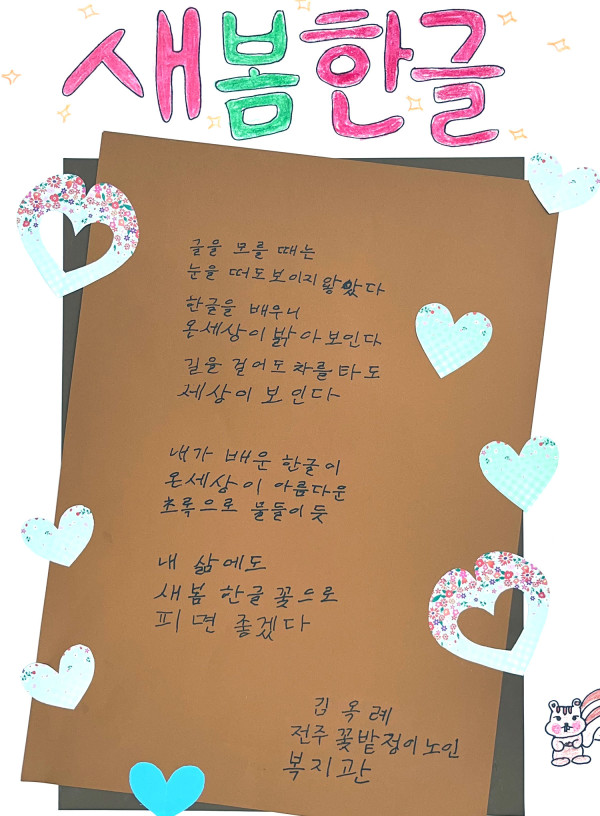 새봄한글
글을 모를 때는
눈을 떠도보이지 않았다
한글을 배우니
온세상이 밝아보인다
길을 걸어도 차를 타도
세상이 보인다
내가 배운 한글이
온세상이 아름다운
초록으로 물들이듯
내 삶에도
새봄 한글 꽃으로
피면 좋겠다
김옥례
전주 꽃밭정이노인
복지관